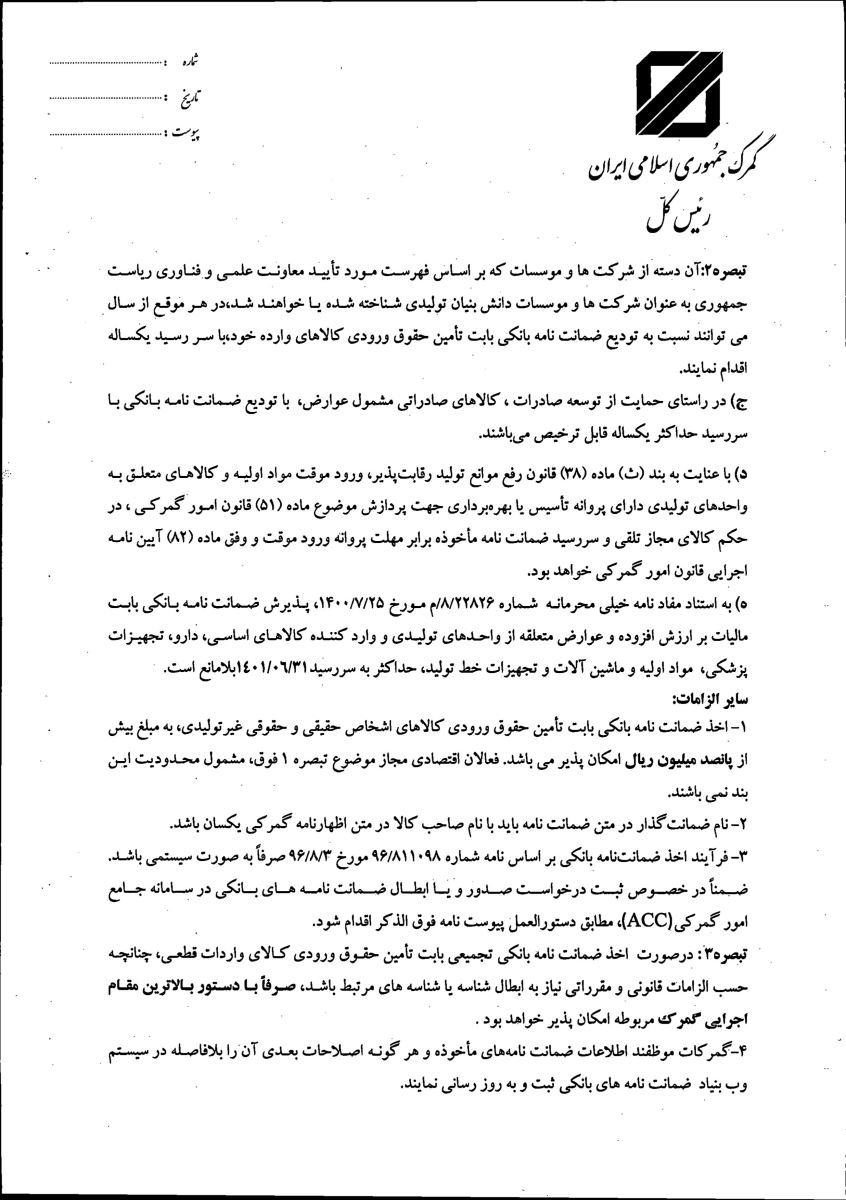 شماره :
تاریخ :
پیوست :
گمرک جمهوری اسلامی ایران
رئیس کل
تبصره۲:آن دسته از شرکت ها و موسسات که بر اساس فهرست مورد تأیید معاونت علمی و فناوری ریاست
جمهوری به عنوان شرکت ها و موسسات دانش بنیان تولیدی شناخته شده یا خواهند شد،در هر موقع از سال
می توانند نسبت به تودیع ضمانت نامه بانکی بابت تأمین حقوق ورودی کالاهای وارده خود،با سر رسید یکساله
اقدام نمایند.
ج) در راستای حمایت از توسعه صادرات ، کالاهای صادراتی مشمول عوارض، با تودیع ضمانت نامه بانکی با
سررسید حداکثر یکساله قابل ترخیص می‌باشند.
د) با عنایت به بند (ث) ماده (۳۸) قانون رفع موانع تولید رقابت‌پذیر، ورود موقت مواد اولیه و کالاهای متعلق به
واحدهای تولیدی دارای پروانه تأسیس یا بهره‌برداری جهت پردازش موضوع ماده (۵۱) قانون امور گمرکی ، در
حکم کالای مجاز تلقی و سررسید ضمانت نامه مأخوذه برابر مهلت پروانه ورود موقت و وفق ماده (۸۲) آیین نامه
اجرایی قانون امور گمرکی خواهد بود.
ه) به استناد مفاد نامه خیلی محرمانه شماره ۸/۲۲۸۲۶/م مورخ ۱۴۰۰/۷/۲۵، پذیرش ضمانت نامه بانکی بابت
مالیات بر ارزش افزوده و عوارض متعلقه از واحدهای تولیدی و وارد کننده کالاهای اساسی، دارو، تجهیزات
پزشکی، مواد اولیه و ماشین آلات و تجهیزات خط تولید، حداکثر به سررسید۱۴۰۱/۰۶/۳۱بلامانع است.
سایر الزامات:
۱- اخذ ضمانت نامه بانکی بابت تأمین حقوق ورودی کالاهای اشخاص حقیقی و حقوقی غیرتولیدی، به مبلغ بیش
از پانصد میلیون ریال امکان پذیر می باشد. فعالان اقتصادی مجاز موضوع تبصره ۱ فوق، مشمول محدودیت این
بند نمی باشند.
۲- نام ضمانت‌گذار در متن ضمانت نامه باید با نام صاحب کالا در متن اظهارنامه گمرکی یکسان باشد.
۳- فرآیند اخذ ضمانت‌نامه بانکی بر اساس نامه شماره ۹۶/۸۱۱۰۹۸ مورخ ۹۶/۸/۳ صرفاً به صورت سیستمی باشد.
ضمناً در خصوص ثبت درخواست صدور و یا ابطال ضمانت نامه های بانکی در سامانه جامع
امور گمرکی(ACC)، مطابق دستورالعمل پیوست نامه فوق الذکر اقدام شود.
تبصره۳: درصورت اخذ ضمانت نامه بانکی تجمیعی بابت تأمین حقوق ورودی کالای واردات قطعی، چنانچه
حسب الزامات قانونی و مقرراتی نیاز به ابطال شناسه یا شناسه های مرتبط باشد، صرفاً با دستور بالاترین مقام
اجرایی گمرک مربوطه امکان پذیر خواهد بود .
۴-گمرکات موظفند اطلاعات ضمانت نامه‌های مأخوذه و هر گونه اصلاحات بعدی آن را بلافاصله در سیستم
وب بنیاد ضمانت نامه های بانکی ثبت و به روز رسانی نمایند.